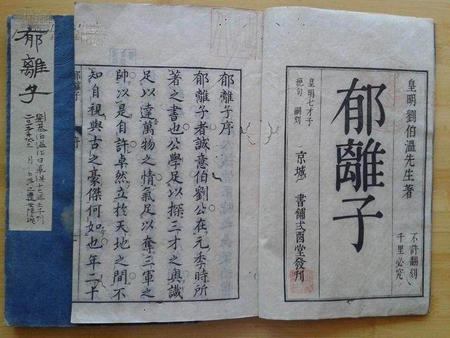 皇明劉伯溫先生著
郁離子
不許翻刻
千里必究
皇明七才子
京城 書鋪弍酉堂發刋
郁離子序
郁離子者誠意伯劉公在元季時所
著之書也公學足以探三才之奥識
足以達萬物之情氣足以奪三軍之
帥以是自許卓然立於天地之間不
知自視與古之豪傑何如也年二十
郁離子